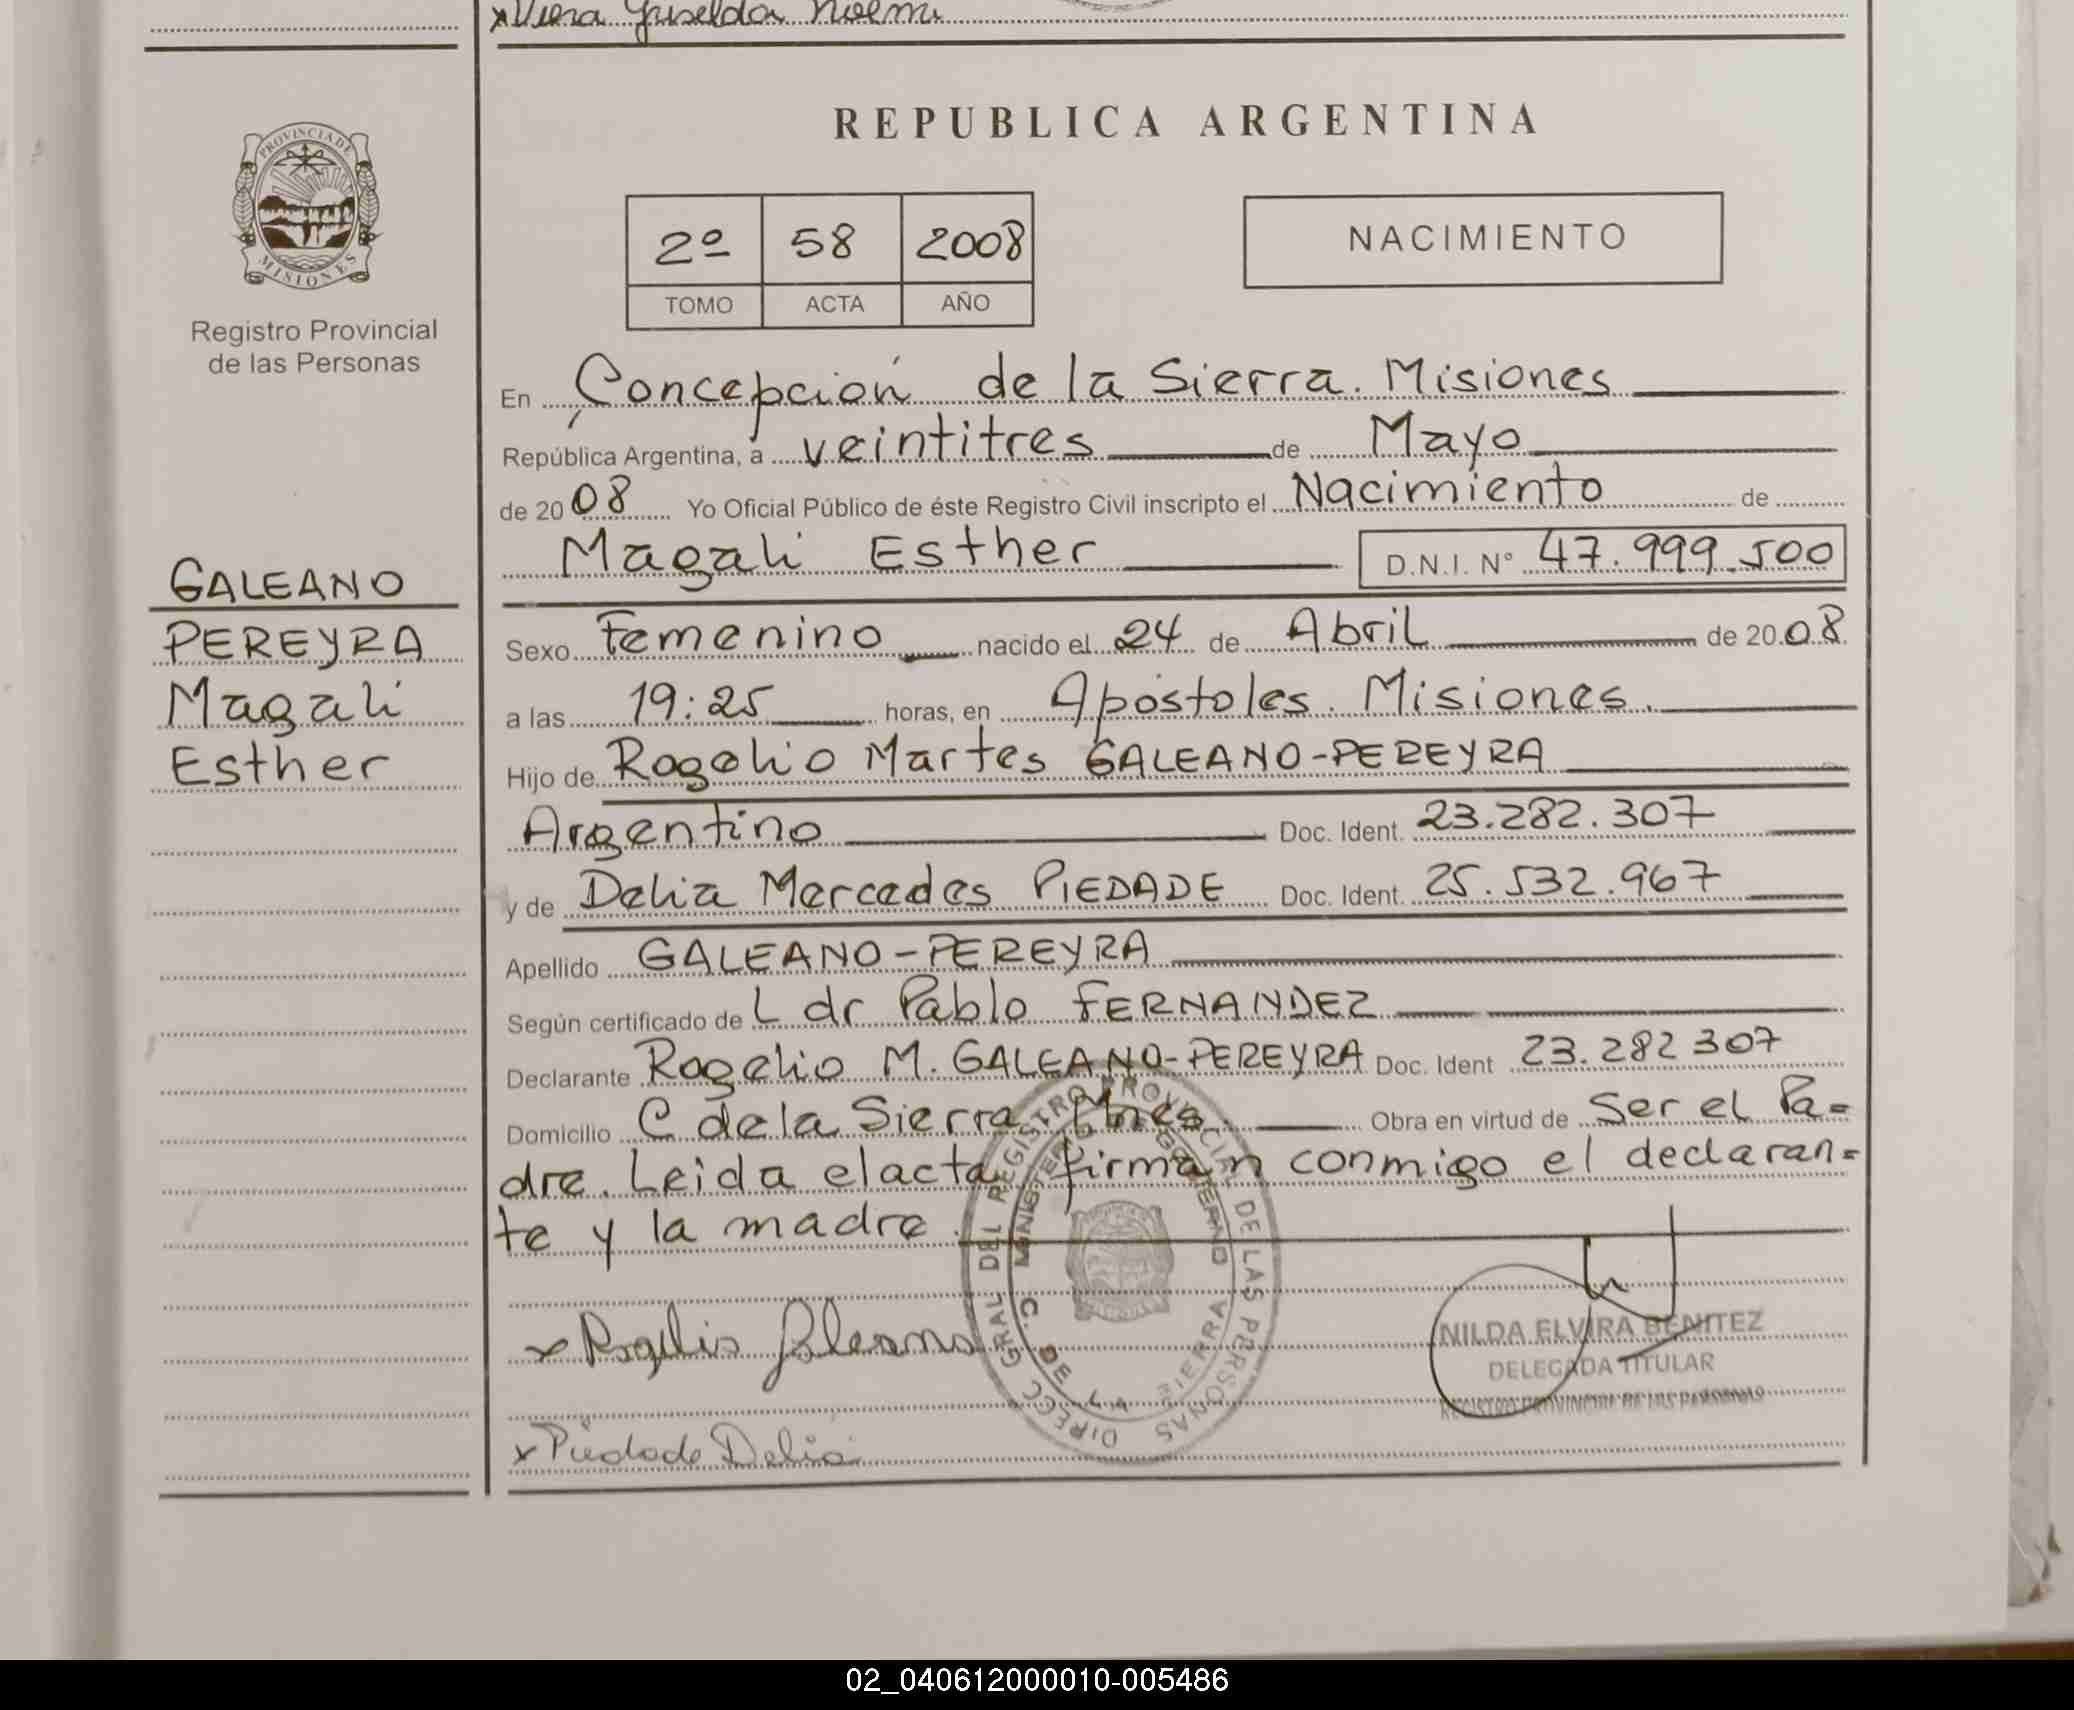 x Viera Griselda Noemi
REPUBLICA ARGENTINA
PROVINCIA DE
MISIONES
Registro Provincial
de las Personas
2º 58 2008
TOMO ACTA AÑO
NACIMIENTO
En Concepción de la Sierra. Misiones
República Argentina, a veintitres de Mayo
de 2008 Yo Oficial Público de éste Registro Civil inscripto el Nacimiento de
Magali Esther D.N.I. Nº 47.999.500
GALEANO
PEREYRA
Magali
Esther
Sexo Femenino nacido el 24 de Abril de 2008
a las 19:25 horas, en Apóstoles. Misiones.
Hijo de Rogelio Martes GALEANO-PEREYRA
Argentino Doc. Ident. 23.282.307
y de Delia Mercedes PIEDADE Doc. Ident. 25.532.967
Apellido GALEANO-PEREYRA
Según certificado de L dr Pablo FERNANDEZ
Declarante Rogelio M. GALEANO-PEREYRA Doc. Ident 23.282 307
Domicilio C de la Sierra. Mnes. Obra en virtud de Ser el Pa=
dre. Leida el acta firman conmigo el declaran=
te y la madre.
DIRECC. GRAL DEL REGISTRO PROVINCIAL DE LAS PERSONAS
MINISTERIO GOBIERNO
C. DE LA SIERRA
x Rogelio Galeano
NILDA ELVIRA BENITEZ
DELEGADA TITULAR
REGISTRO PROVINCIAL DE LAS PERSONAS
x Piedade Delia
02_040612000010-005486